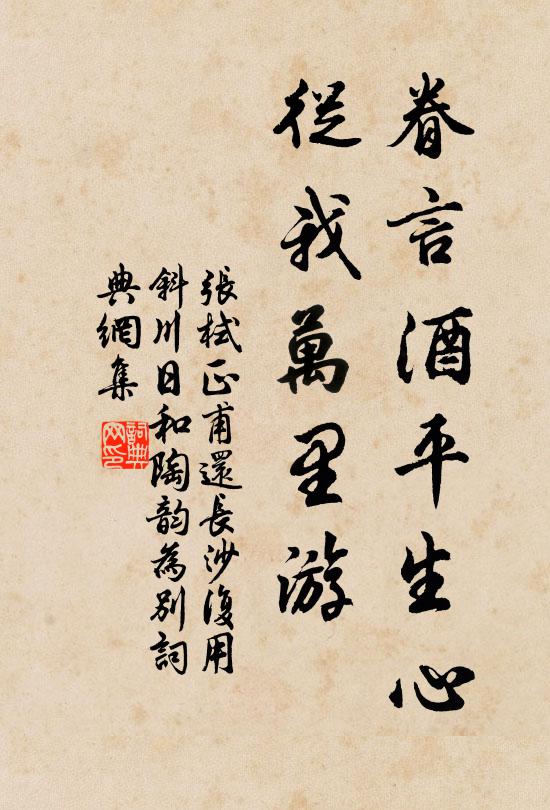 眷言酒平生心
從我萬里游
張栻正甫還長沙復用
斜川日和陶韵為別詞
典網集
詞典網印